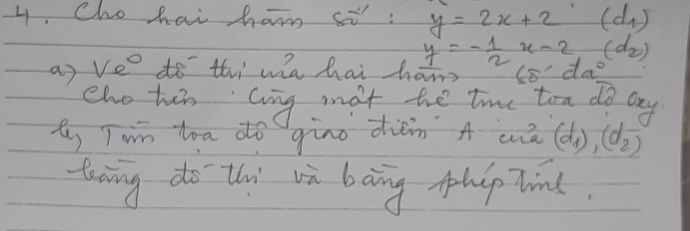 4. Cho hai hàm số : y = 2x + 2 (d1)
y = -1/2 x - 2 (d2)
a) Vẽ đồ thị của hai hàm số đã
cho trên cùng một hệ trục tọa độ Oxy.
b) Tìm tọa độ giao điểm A của (d1), (d2)
bằng đồ thị và bằng phép tính.